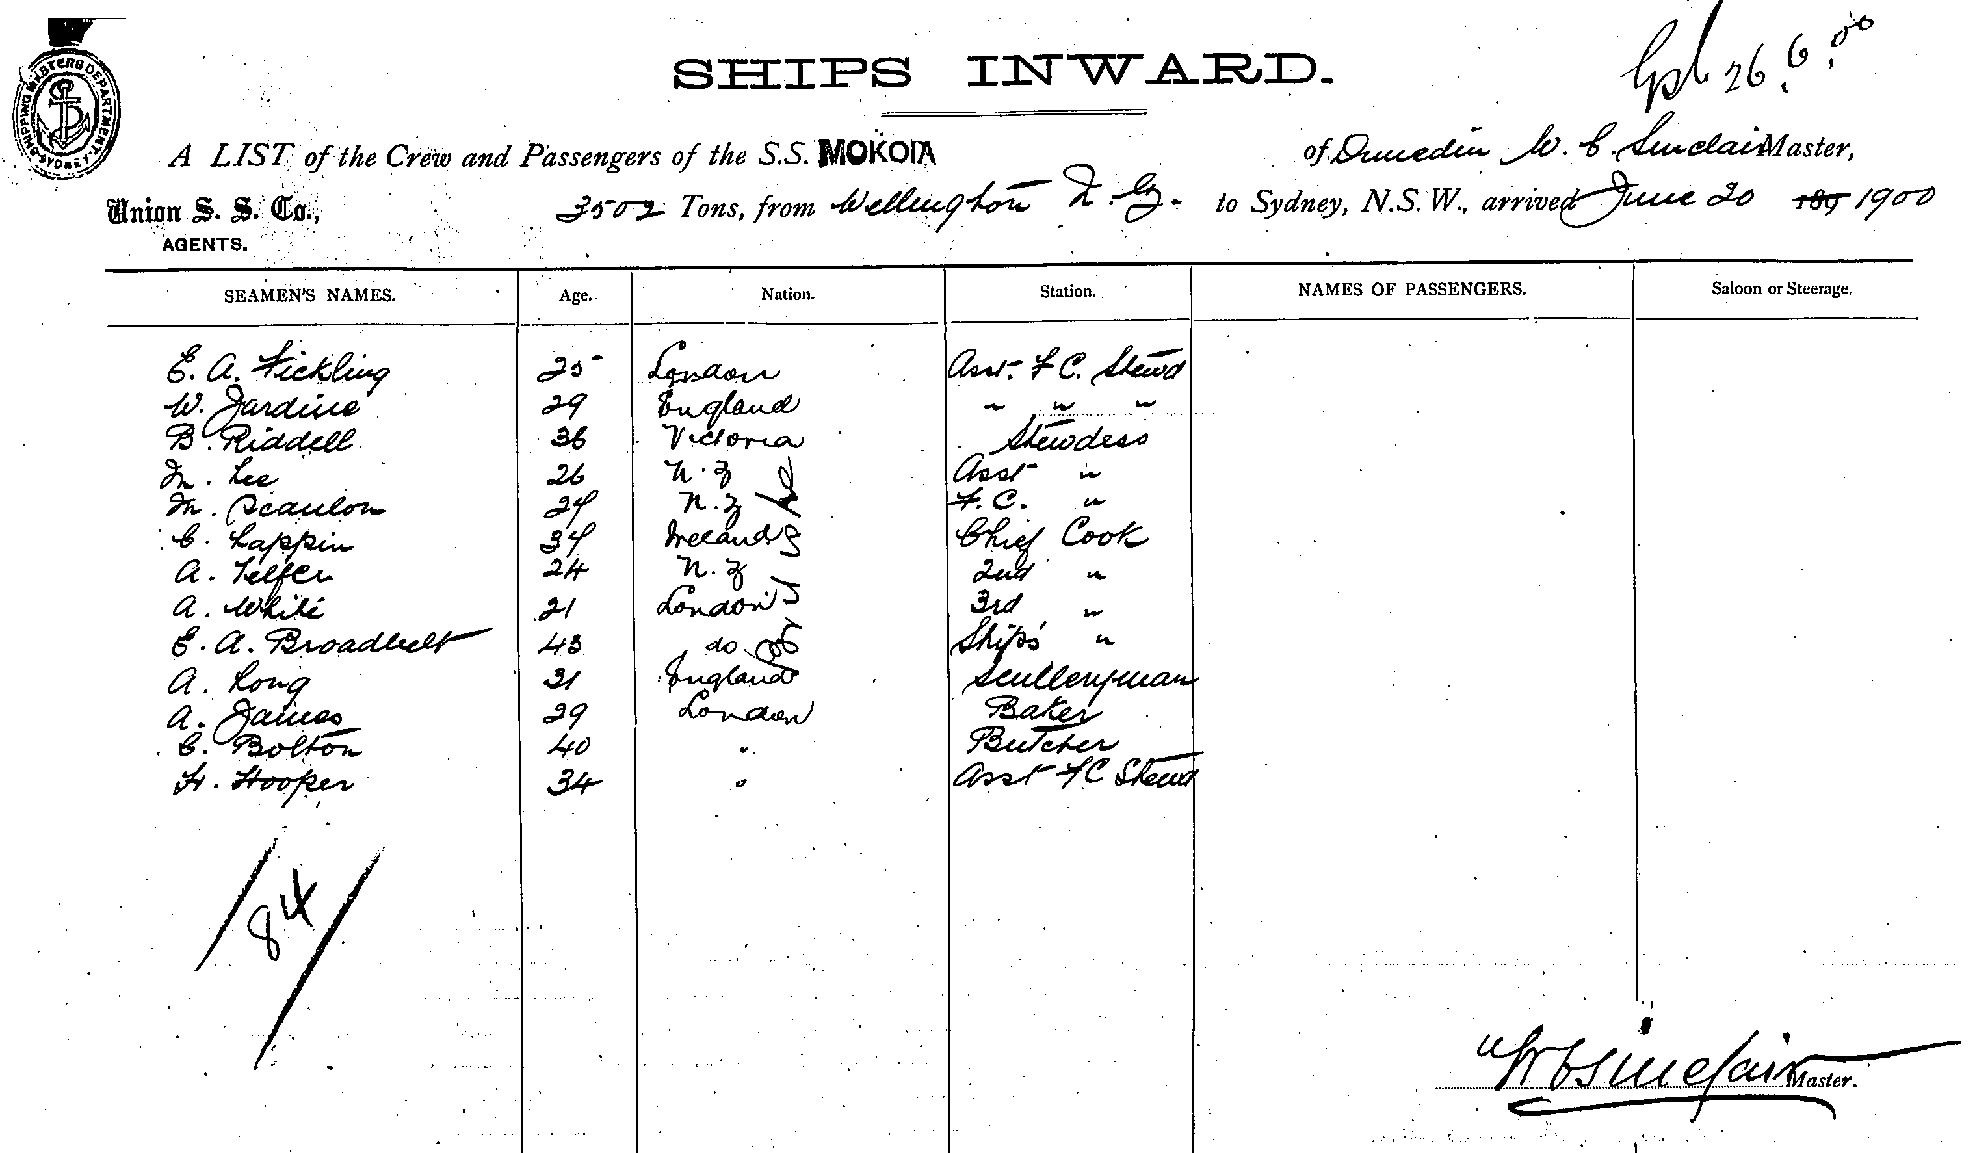 SHIPS INWARD.
26.6.00
SHIPPING MASTERS DEPARTMENT. SYDNEY
A LIST of the Crew and Passengers of the S.S. MOKOIA of Dunedin W. C. Sinclair Master,
Union S. S. Co., 3502 Tons, from Wellington N.Z. to Sydney, N.S.W., arrived June 20 189 1900
AGENTS.
SEAMEN'S NAMES. Age. Nation. Station. NAMES OF PASSENGERS. Saloon or Steerage.
E. A. Fickling 25 London Asst. F C. Stewd
W. Jardine 29 England " " "
B. Riddell 36 Victoria Stewdess
M. Lee 26 N.Z Asst "
M. Scanlon 24 N.Z F.C. "
C. Lappin 34 Ireland Chief Cook
A. Telfer 24 N.Z 2nd "
A. White 21 London 3rd "
E. A. Broadbelt 43 do Ships' "
A. Long 21 England Sculleryman
A. James 29 London Baker
C. Bolton 40 " Butcher
H. Hooper 34 " Asst F C Stewd
84
W C Sinclair Master.